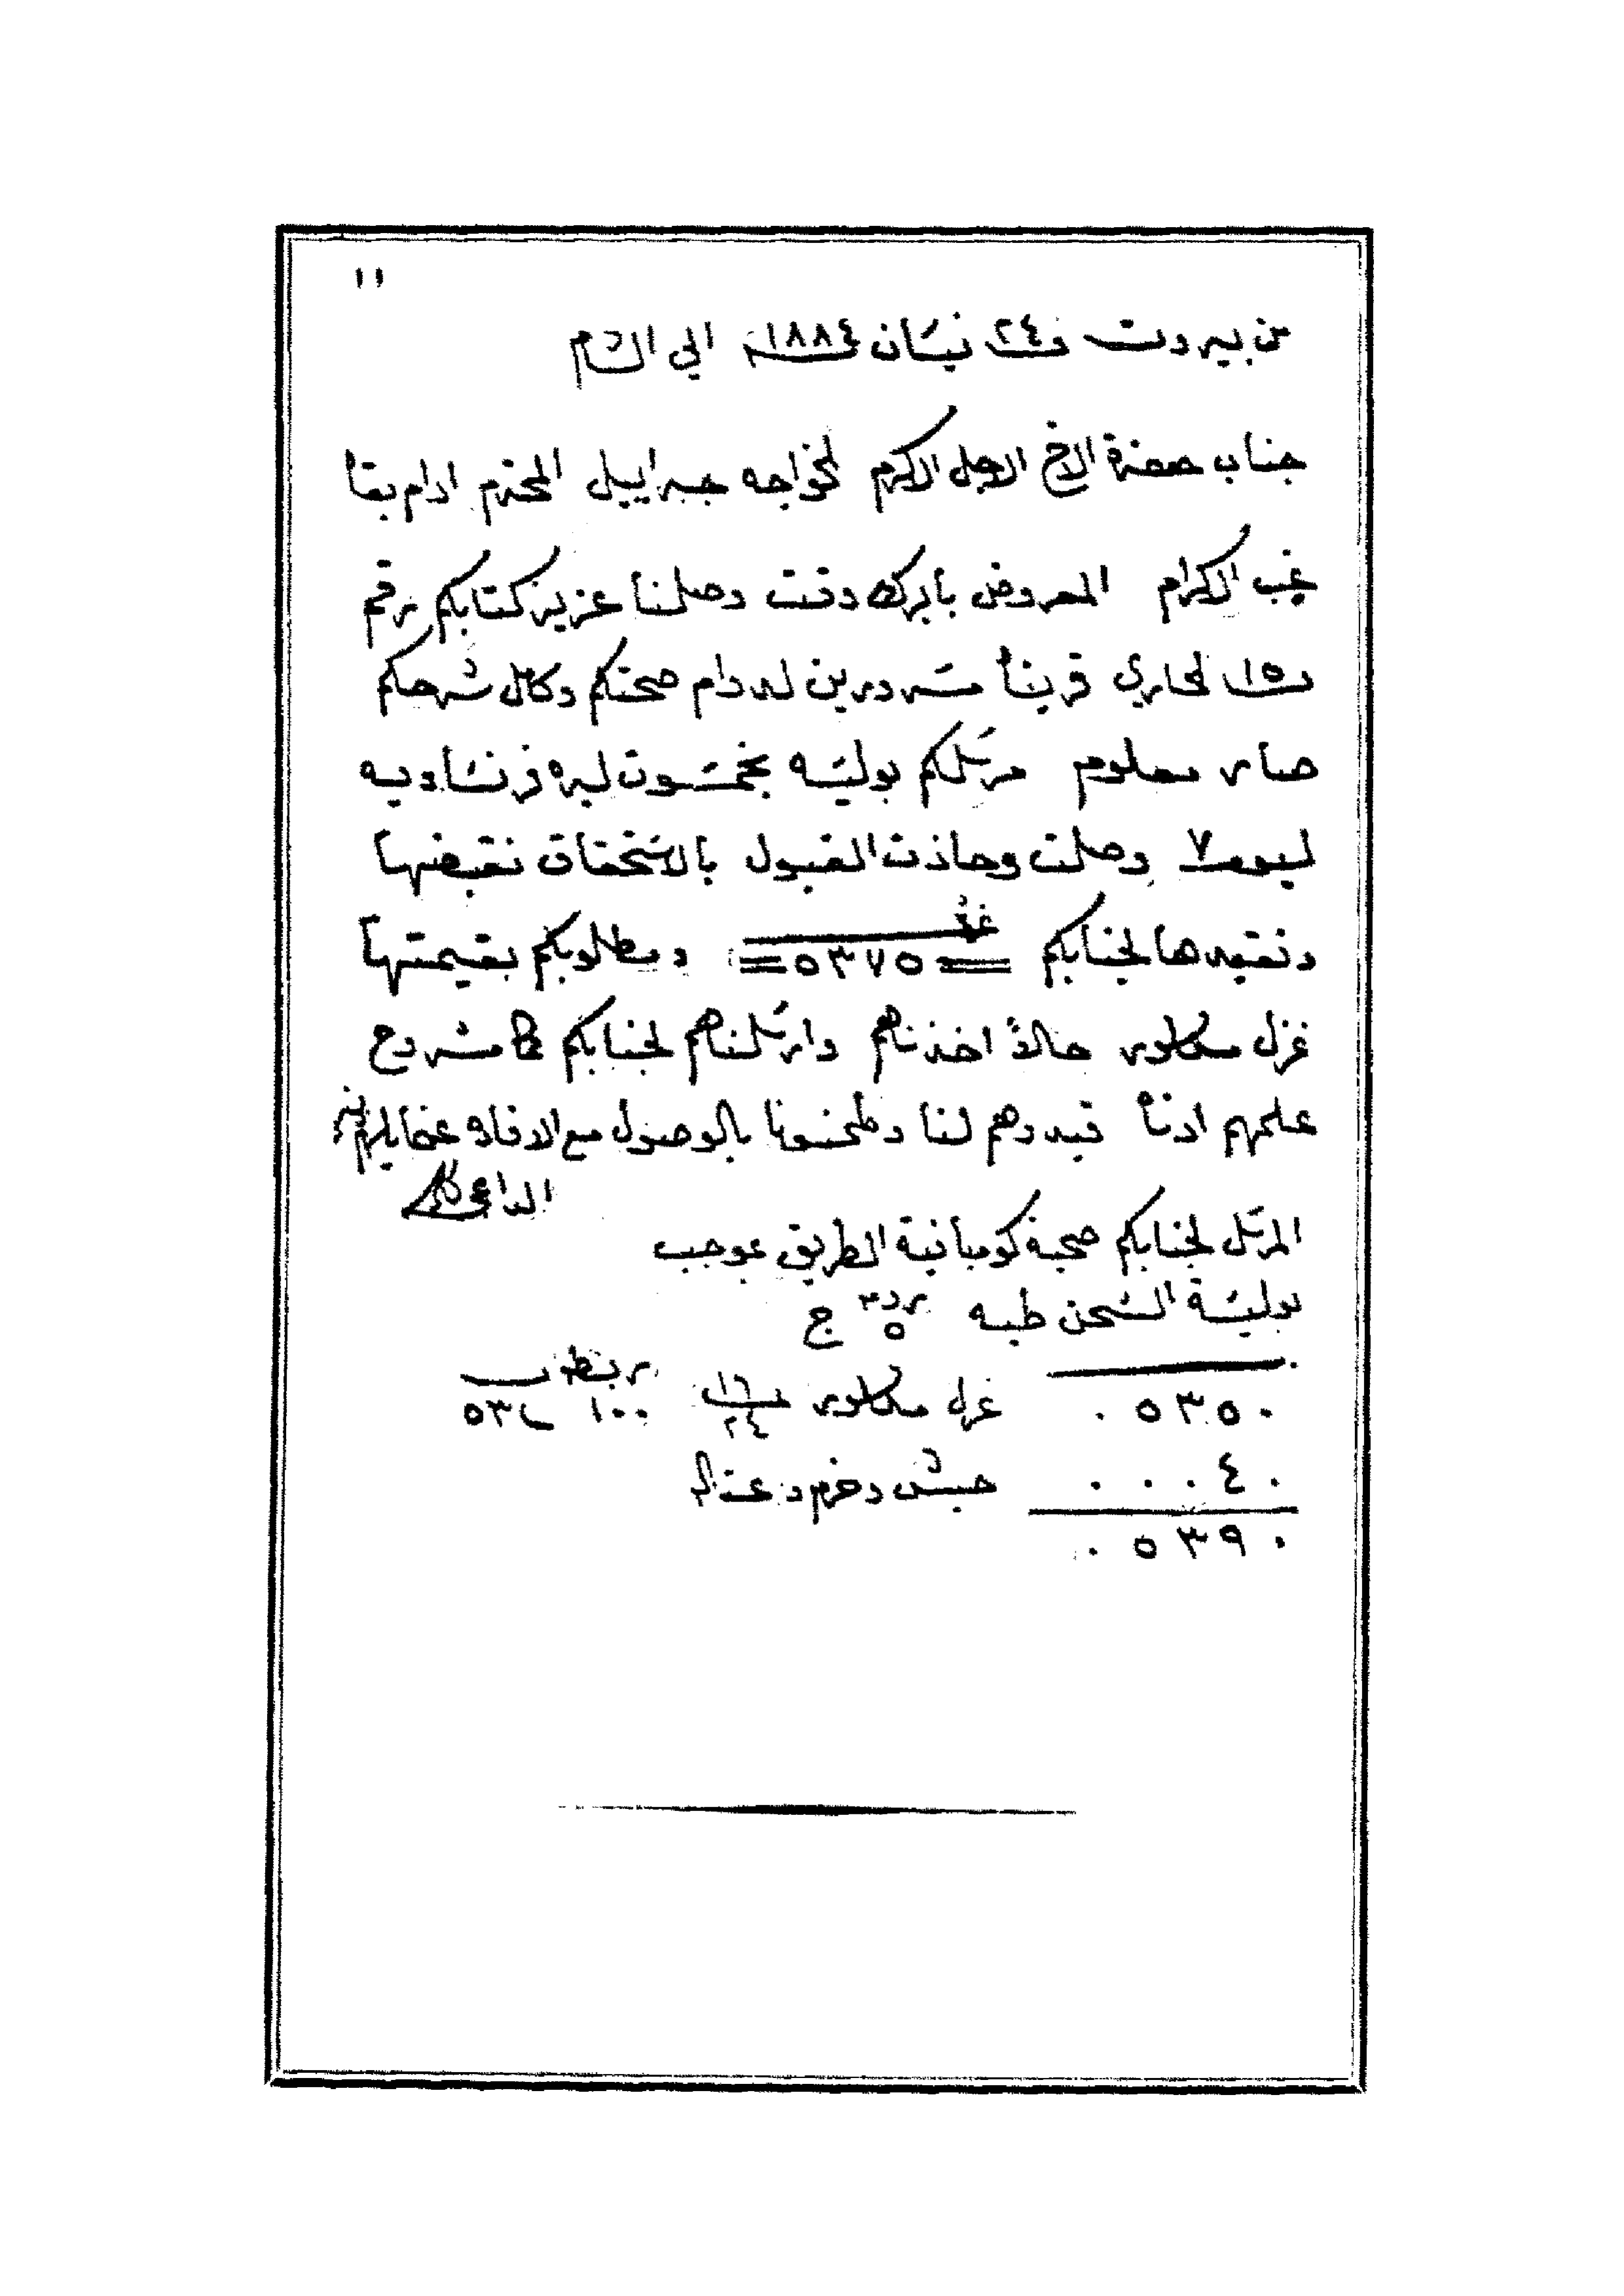 ١١
من بيروت في ٢٤ نيسان سنة ١٨٨٤ الى الشام
جناب حضرة الاخ الاجل الاكرم الخواجه جبراييل المحترم ادام بقاه
غب الاكرام المعروض بابرك وقت وصلنا عزيز كتابكم رقم
١٥ الجاري قريناه مسرورين لدوام صحتكم وكامل شرحكم
صار معلوم مرسلكم بوليسه بخمسون ليره فرنساويه
ليوم ٧ وصلت وحاذت القبول بالاستحقاق نقبضها
ونقيدها لجنابكم ٥٣٧٥ ومطلوبكم بقيمتها
غزل مكاور حالاً اخذناهم وارسلناهم لجنابكم كما مشروح
علمهم ادناه قيدوهم لنا وطمنونا بالوصول مع الافاده عما يلزم
الداعي
المرسل لجنابكم صحبة كومبانية الطريق بموجب
بوليسة الشحن طيه
٥٣٥٠ غزل مكاور ١٦ ٢٤ ١٠٠ ٥٣
٠٠٤٠ خيش وحزم وعتاله
٥٣٩٠